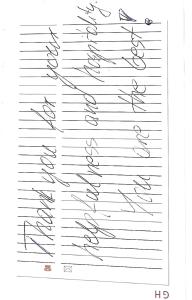 Thank you for your
helpfulness and rapidity.
You are the best!
GH